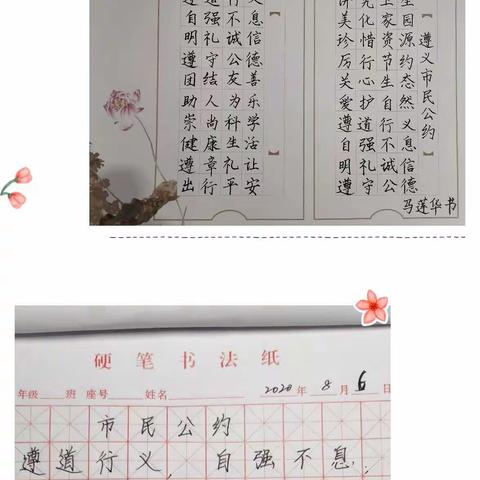 遵道行义
自强不息
明礼诚信
遵守公德
团结友善
助人为乐
崇尚科学
健康生活
遵章礼让
出行平安
【遵义市民公约】
讲究卫生
美化家园
珍惜资源
厉行节约
关心生态
爱护自然
遵道行义
自强不息
明礼诚信
遵守公德
马莲华书
硬笔书法纸
年级 班 座号 姓名 2020年 8月 6日
市民公约
遵道行义，自强不息；